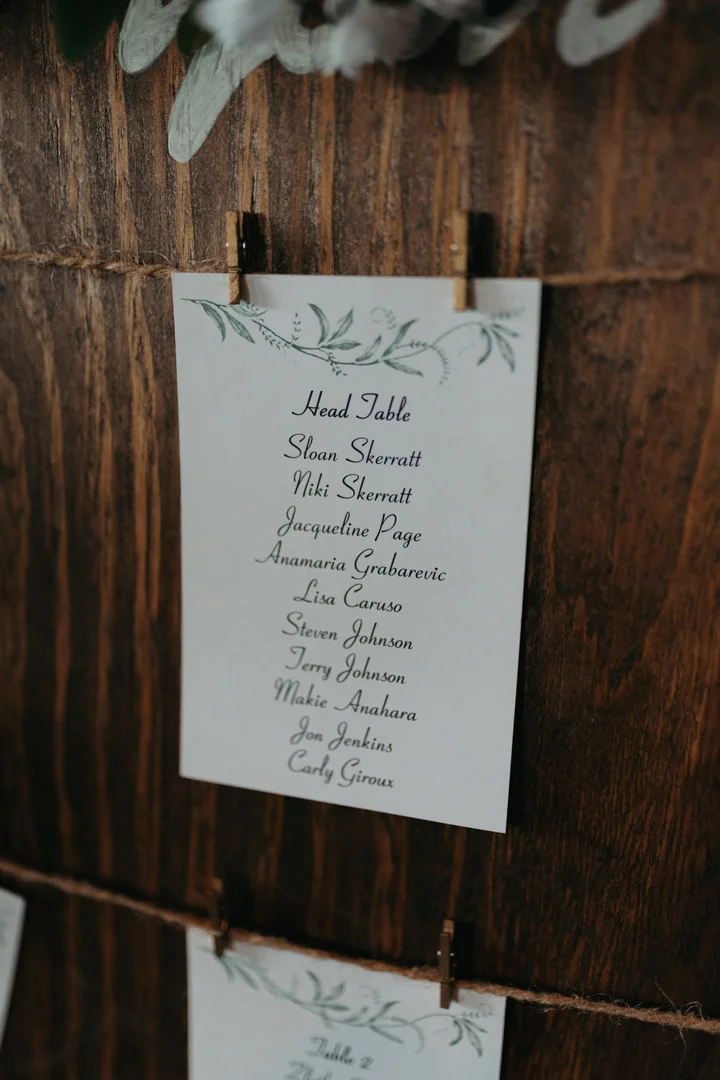 Head Table
Sloan Skerratt
Niki Skerratt
Jacqueline Page
Anamaria Grabarevic
Lisa Caruso
Steven Johnson
Terry Johnson
Makie Anahara
Jon Jenkins
Carly Giroux
Table 2